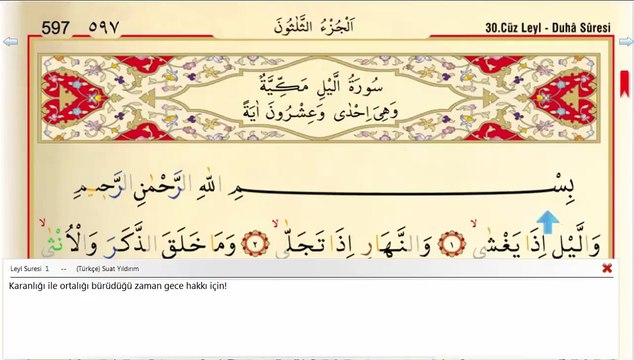 597 ٥٩٧ اَلْجُزْءُ الثَّلٰثُونَ 30.Cüz Leyl - Duhâ Sûresi
سُورَةُ الَّيْلِ مَكِّيَّةٌ
وَهِىَ اِحْدٰى وَعِشْرُونَ اٰيَةً
بِسْــــــــــمِ اللّٰهِ الرَّحْمٰنِ الرَّحٖيمِ
وَالَّيْلِ اِذَا يَغْشٰىۙ ﴿١﴾ وَالنَّهَارِ اِذَا تَجَلّٰىۙ ﴿٢﴾ وَمَا خَلَقَ الذَّكَرَ وَالْاُنْثٰىۙ
Leyl Suresi 1 -- (Türkçe) Suat Yıldırım
Karanlığı ile ortalığı bürüdüğü zaman gece hakkı için!